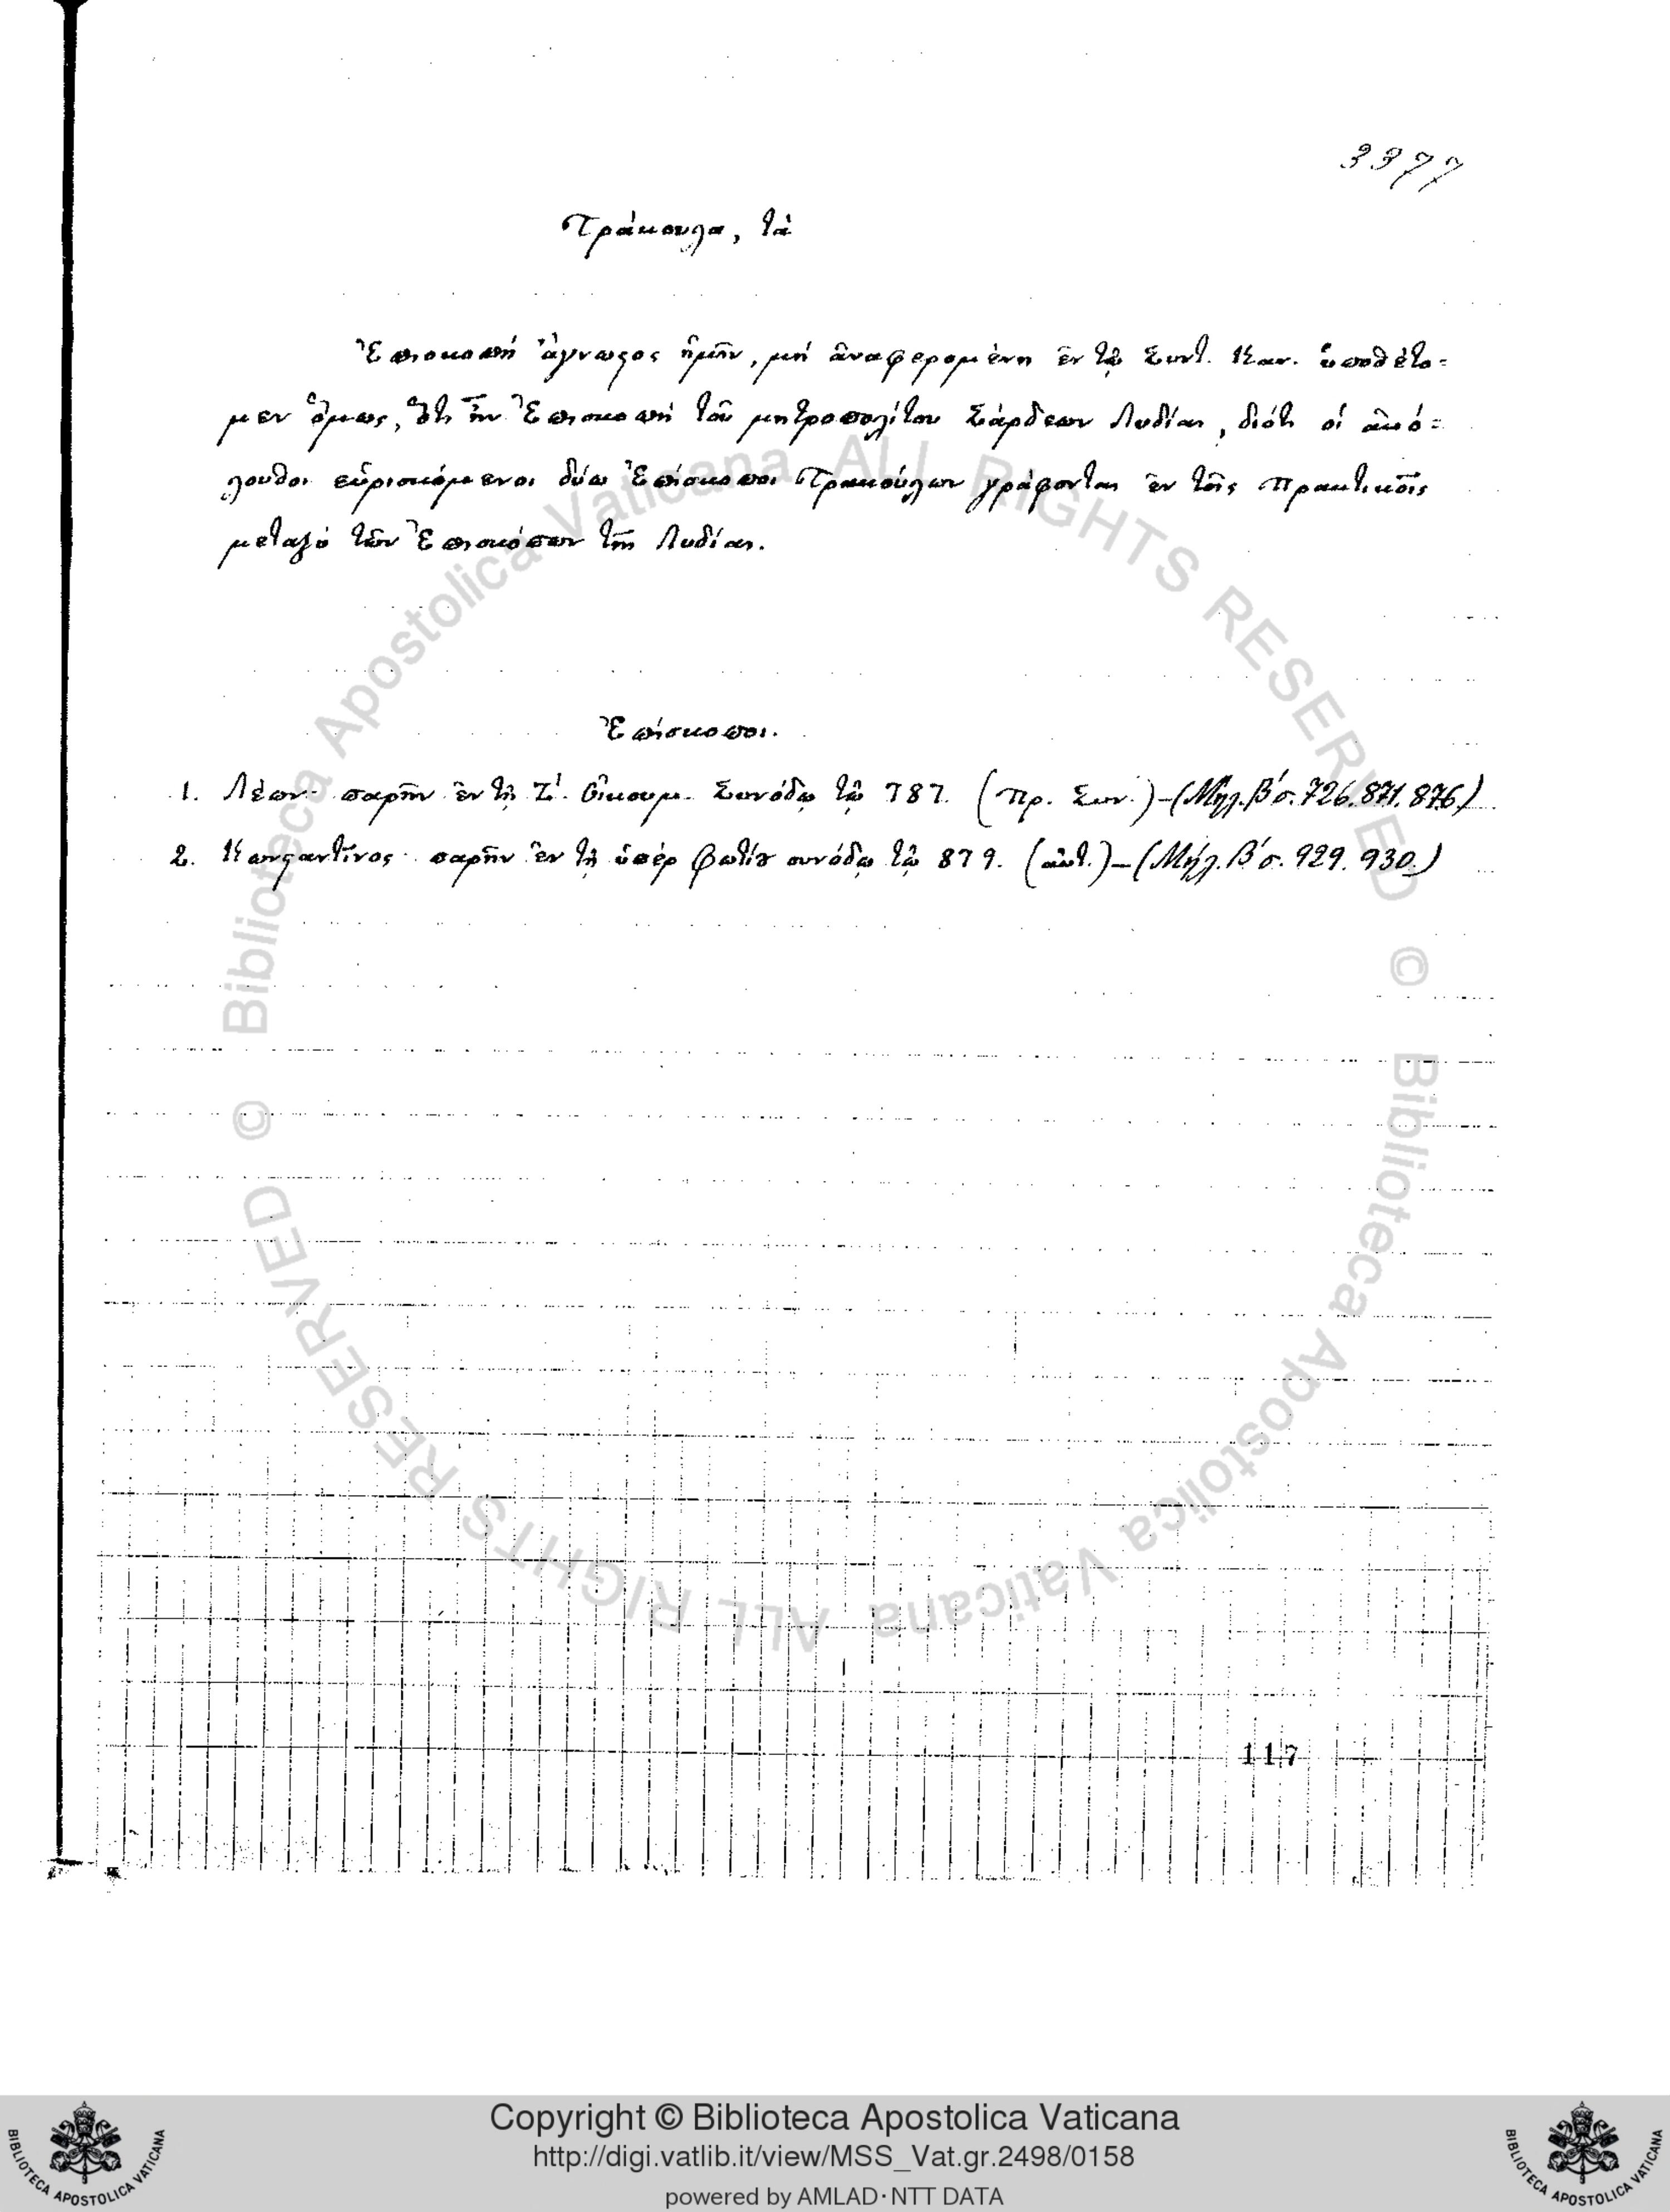 3377
Τράκουλα, τὰ
Ἐπισκοπὴ ἄγνωστος ἡμῖν, μὴ ἀναφερομένη ἐν τῷ Συντ. Καν. ὑποθέτο=
μεν ὅμως, ὅτι ἦν Ἐπισκοπὴ τοῦ μητροπολίτου Σάρδεων Λυδίας, διότι οἱ ἀκό=
λουθοι εὑρισκόμενοι δύω Ἐπίσκοποι Τρακούλων γράφονται ἐν τοῖς Πρακτικοῖς
μεταξὺ τῶν Ἐπισκόπων τῆς Λυδίας.
Ἐπίσκοποι.
1. Λέων· παρῆν ἐν τῇ Ζ'. Οἰκουμ. Συνόδῳ τῷ 787. (Πρ. Συν.)-(Μηλ. Β' σ. 726. 871. 876)
2. Κωνσταντῖνος· παρῆν ἐν τῇ ὑπὲρ Φωτίου συνόδῳ τῷ 879. (αὐτ.)-(Μηλ. Β' σ. 929. 930.)
117
© Biblioteca Apostolica Vaticana ALL RIGHTS RESERVED
© Biblioteca Apostolica Vaticana ALL RIGHTS RESERVED
BIBLIOTECA APOSTOLICA VATICANA
Copyright © Biblioteca Apostolica Vaticana
http://digi.vatlib.it/view/MSS_Vat.gr.2498/0158
powered by AMLAD·NTT DATA
BIBLIOTECA APOSTOLICA VATICANA